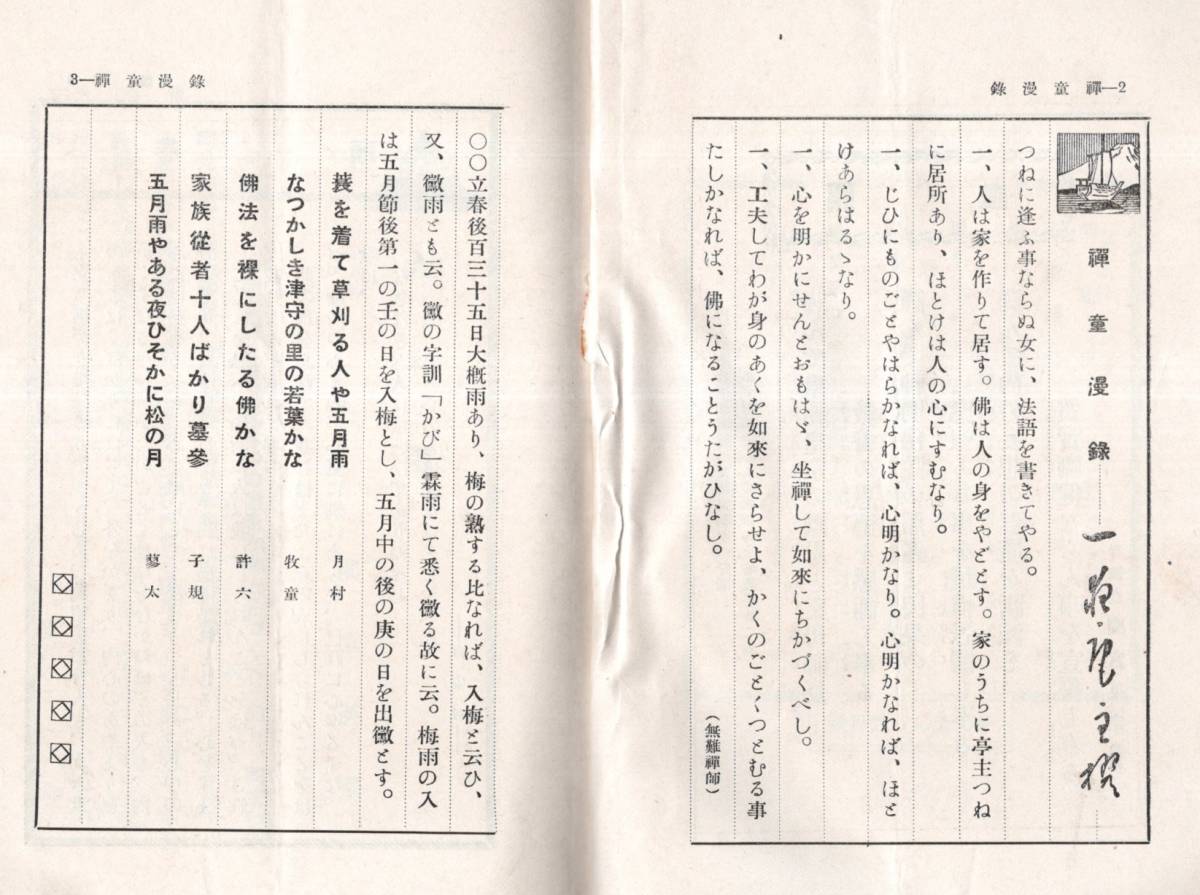 2—禪童漫錄
禪童漫錄
つねに逢ふ事ならぬ女に、法語を書きてやる。
一、人は家を作りて居す。佛は人の身をやどとす。家のうちに亭主つね
に居所あり、ほとけは人の心にすむなり。
一、じひにものごとやはらかなれば、心明かなり。心明かなれば、ほと
けあらはるゝなり。
一、心を明かにせんとおもはゞ、坐禪して如來にちかづくべし。
一、工夫してわが身のあくを如來にさらせよ、かくのごとくつとむる事
たしかなれば、佛になることうたがひなし。
(無難禪師)
3—禪童漫錄
〇〇立春後百三十五日大槪雨あり、梅の熟する比なれば、入梅と云ひ、
又、黴雨とも云。黴の字訓「かび」霖雨にて悉く黴る故に云。梅雨の入
は五月節後第一の壬の日を入梅とし、五月中の後の庚の日を出黴とす。
蓑を着て草刈る人や五月雨 月村
なつかしき津守の里の若葉かな 牧童
佛法を裸にしたる佛かな 許六
家族從者十人ばかり墓參 子規
五月雨やある夜ひそかに松の月 蓼太